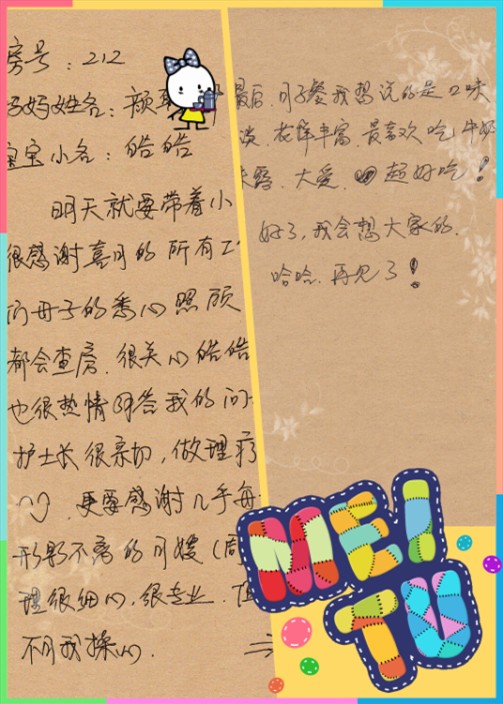 房号：212
妈妈姓名：颜
宝宝小名：皓皓
明天就要带着小
很感谢喜月的所有工
们母子的悉心照顾
都会查房.很关心皓皓
也很热情解答我的问
护士长很亲切,做理疗
更要感谢几乎每
形影不离的月嫂(周
理很细心,很专业.
不用我操心.
最后.月子餐我想说的是口味
淡.花样丰富.最喜欢吃牛奶
大爱.超好吃!
好了,我会想大家的.
哈哈.再见了!
MEI
TU